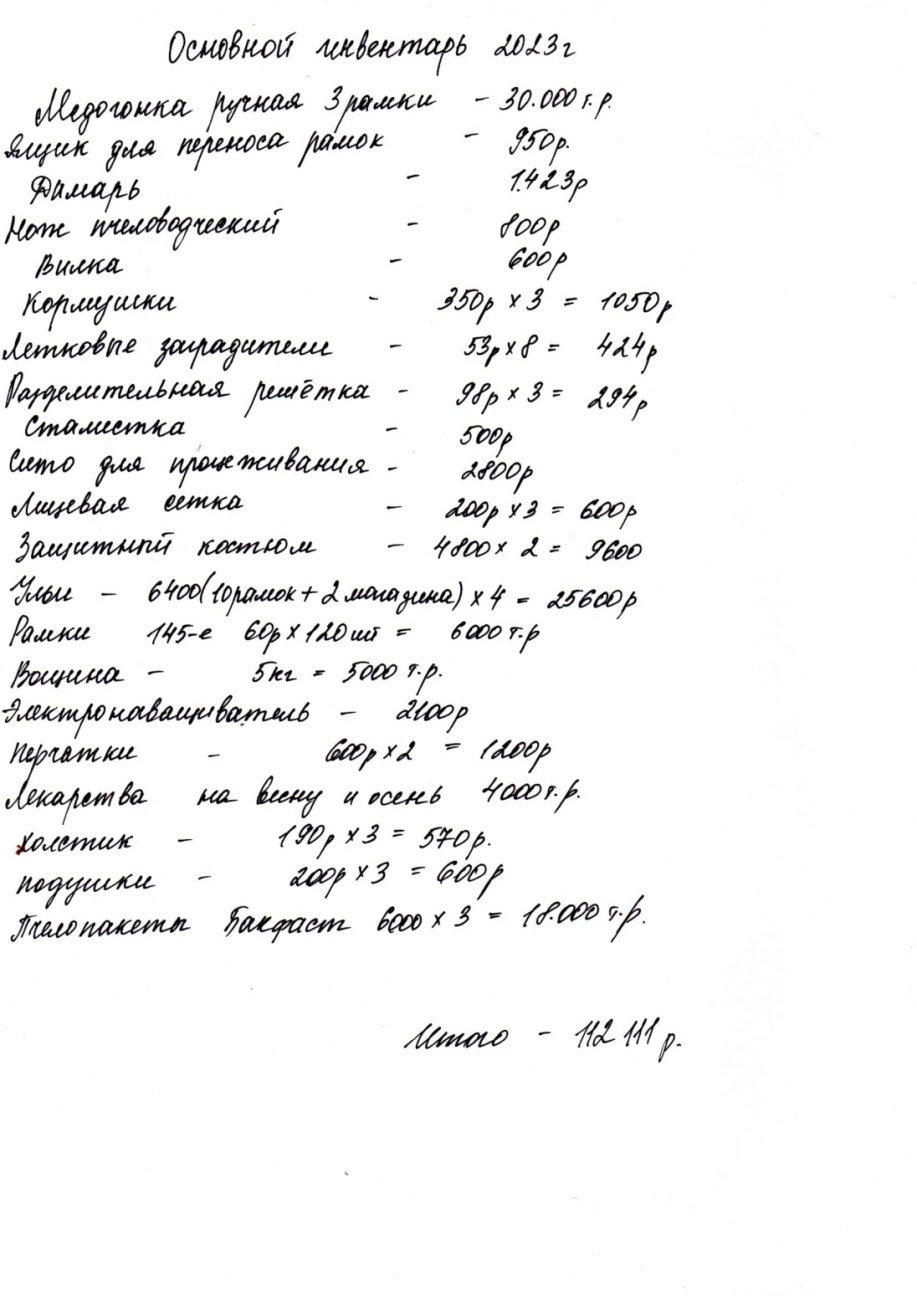 Основной инвентарь 2023г
Медогонка ручная 3 рамки - 30.000 т.р.
Ящик для переноса рамок - 950р.
Дымарь - 1.423р
Нож пчеловодческий - 800р
Вилка - 600р
Кормушки - 350р х 3 = 1050р
Летковые заградители - 53р х 8 = 424р
Разделительная решётка - 98р х 3 = 294р
Стаместка - 500р
Сито для процеживания - 2800р
Лицевая сетка - 200р х 3 = 600р
Защитный костюм - 4800 х 2 = 9600
Ульи - 6400 (10 рамок + 2 магазина) х 4 = 25600р
Рамки 145-е 60р х 120 шт = 6000 т.р
Вощина - 5кг = 5000 т.р.
Электронаващиватель - 2100р
перчатки - 600р х 2 = 1200р
Лекарства на весну и осень 4000 т.р.
холстик - 190р х 3 = 570р.
подушки - 200р х 3 = 600р
Пчелопакеты Бакфаст 6000 х 3 = 18.000 т.р.
Итого - 112 111 р.